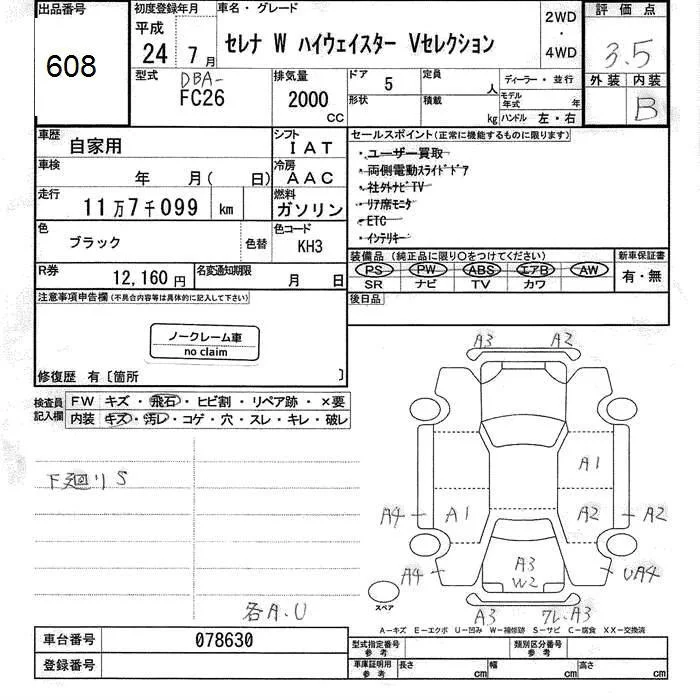 出品番号
608
初度登録年月
平成
24年 7月
車名・グレード
セレナ W ハイウェイスター Vセレクション
2WD
・
4WD
評価点
3.5
型式
DBA-
FC26
排気量
2000
CC
ドア
5
定員
人
形状
積載
kg
ディーラー・並行
モデル年式
年
ハンドル 左・右
外装 内装
B
車歴
自家用
シフト
IAT
車検
年 月( 日)
冷房
AAC
走行
11万7千099 km
燃料
ガソリン
色
ブラック
色替
色コード
KH3
R券
12,160円
名変通知期限
月 日
セールスポイント(正常に機能するものに限ります)
・ユーザー買取
・両側電動スライドドア
・社外ナビTV
・リア席モニタ
・ETC
・インテリキー
装備品 (純正品に限り○をつけてください)
PS PW ABS エアB AW
SR ナビ TV カワ
新車保証書
有・無
後日品
注意事項申告欄(不具合内容等は具体的に記入して下さい)
ノークレーム車
no claim
修復歴 有[箇所 ]
検査員
記入欄
FW キズ・飛石・ヒビ割・リペア跡・×要
内装 キズ・汚レ・コゲ・穴・スレ・キレ・破レ
下廻りS
各A.U
A3 A2
A1
A4 A1 A2 A2
A3
W2
A4 UA4
スペア
A3 フレ.A3
A−キズ E−エクボ U−凹み W−補修跡 S−サビ C−腐食 XX−交換済
車台番号
078630
登録番号
型式指定番号
参考
類別区分番号
参考
車庫証明用
参考
長さ cm
幅 cm
高さ cm